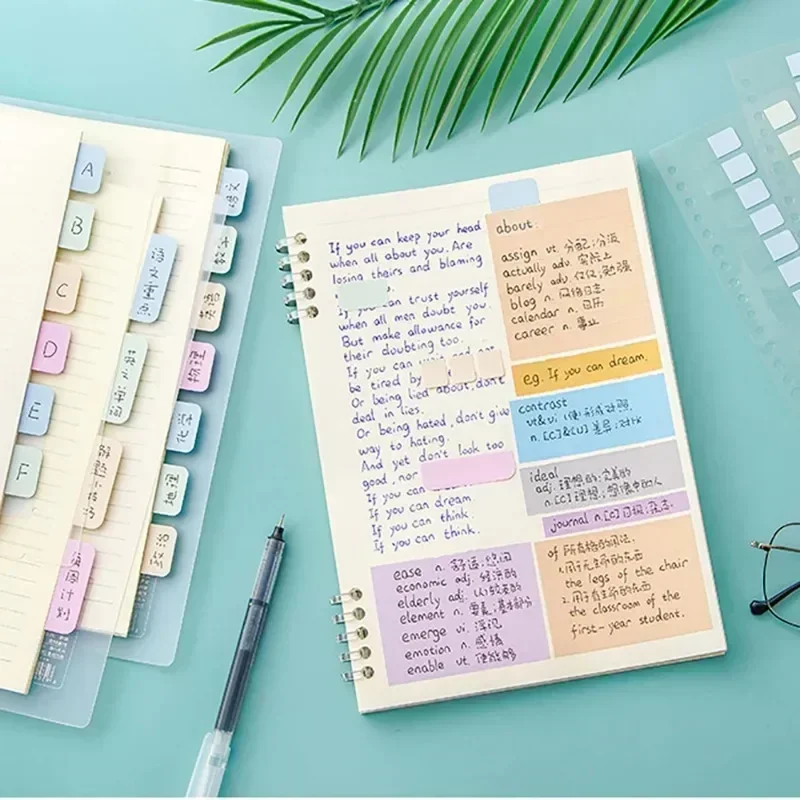 A
B
C
D
E
F
语文重点
周计划
语文
数学
英语
物理
化学
地理
政治
If you can keep your head
when all about you. Are
losing theirs and blaming
If you can trust yourself
when all men doubt you.
But make allowance for
their doubting too.
If you can
be tired by
Or being lied about, don't
deal in lies.
Or being hated, don't give
way to hating.
And yet don't look too
good, nor
If you can
If you can dream
If you can think.
If you can think.
about.
assign vt. 分配;分派
actually adv. 实际上
barely adv. 仅仅;勉强
blog n. 网络日志
calendar n. 日历
career n. 事业
e.g. If you can dream.
contrast
vt&vi (使)形成对照
n. [C]&[U] 差异;对比
ideal
adj. 理想的;完美的
n. [C] 理想;想像中的人
journal n. [C] 日报;杂志.
ease n. 舒适;悠闲
economic adj. 经济的
elderly adj. (人)较老的
element n. 要素;基本部分
emerge vi. 浮现
emotion n. 感情
enable vt. 使能够
of 所有格的用法:
1.用于无生命的东西
the legs of the chair
2.用于有生命的东西
the classroom of the
first-year student.